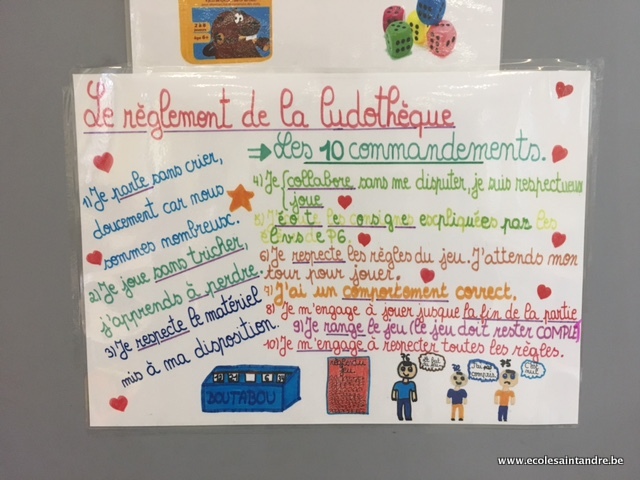 Le règlement de la ludothèque
⇒ Les 10 commandements.
1) Je parle sans crier,
doucement car nous
sommes nombreux.
2) Je joue sans tricher,
j'apprends à perdre.
3) Je respecte le matériel
mis à ma disposition.
4) Je collabore sans me disputer, je suis respectueux
joue
5) J'écoute les consignes expliquées par les
élèves de P6.
6) Je respecte les règles du jeu. J'attends mon
tour pour jouer.
7) J'ai un comportement correct.
8) Je m'engage à jouer jusque la fin de la partie
9) Je range le jeu (le jeu doit rester COMPLET)
10) Je m'engage à respecter toutes les règles.
BOUTABOU
J'ai pas
compris
www.ecolesaintandre.be